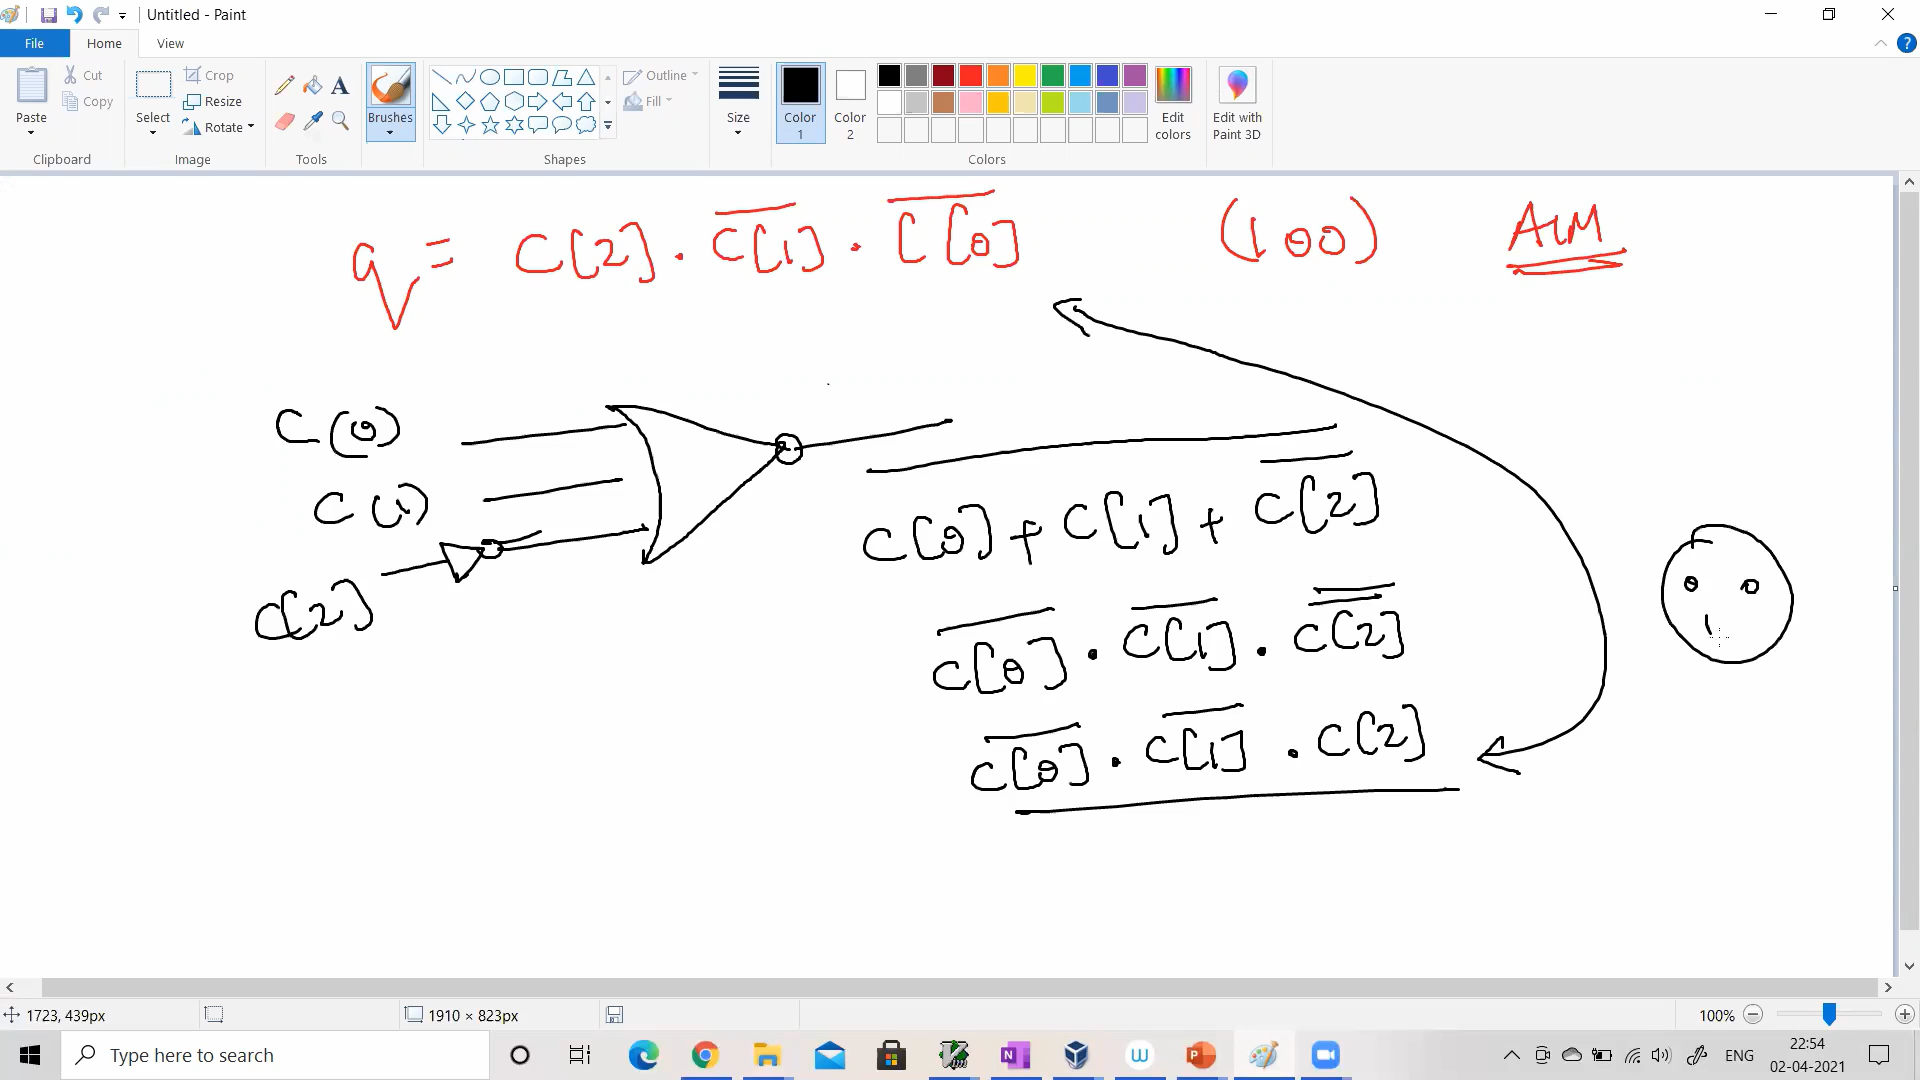 Untitled - Paint
File Home View
Paste
Cut
Copy
Clipboard
Select
Crop
Resize
Rotate
Image
Tools
Brushes
Shapes
Outline
Fill
Size
Color 1
Color 2
Edit colors
Colors
Edit with Paint 3D
q = C[2] . C̅[̅1̅]̅ . C̅[̅0̅]̅ (100) AIM
C(0)
C(1)
C[2]
C[0] + C[1] + C[2]
C[0] . C[1] . C[2]
C[0] . C[1] . C[2]
1723, 439px
1910 × 823px
100%
Type here to search
ENG
22:54
02-04-2021